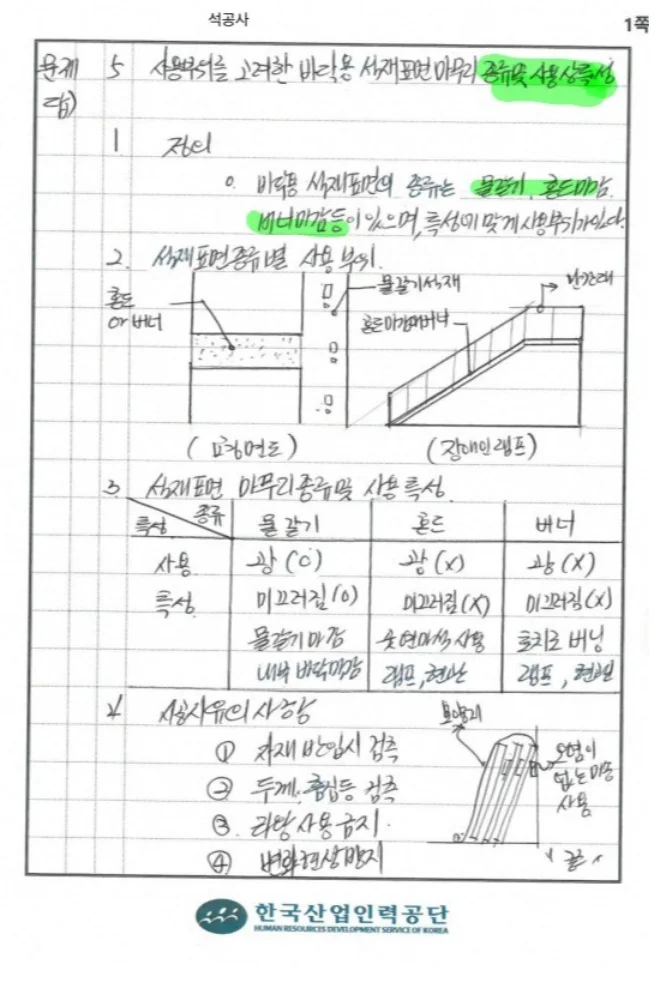 석공사
1쪽
문제 5 사용부위를 고려한 바닥용 석재표면마무리 종류및 사용상특성
답)
1 정의
o. 바닥용 석재표면의 종류는 물갈기, 혼드마감,
버너마감등이 있으며, 특성에 맞게 사용부위가있다.
2. 석재표면종류별 사용부위.
혼드
or 버너
물갈기석재
혼드마감
난간대
(표창면도)
(장애인램프)
3 석재표면 마무리종류및 사용특성.
특성 종류 물갈기 혼드 버너
사용 광(O) 광(X) 광(X)
특성 미끄러짐(O) 미끄러짐(X) 미끄러짐(X)
물갈기마감 사용 토치로 버닝
내부 바닥마감 램프, 현관 램프, 현관
4 시공시유의사항
① 자재반입시 검측
② 두께, 흠집등 검측
③. 사용금지.
④ 변화현상방지
보양재
오염이
없는
사용
"끝"
한국산업인력공단
HUMAN RESOURCES DEVELOPMENT SERVICE OF KOREA